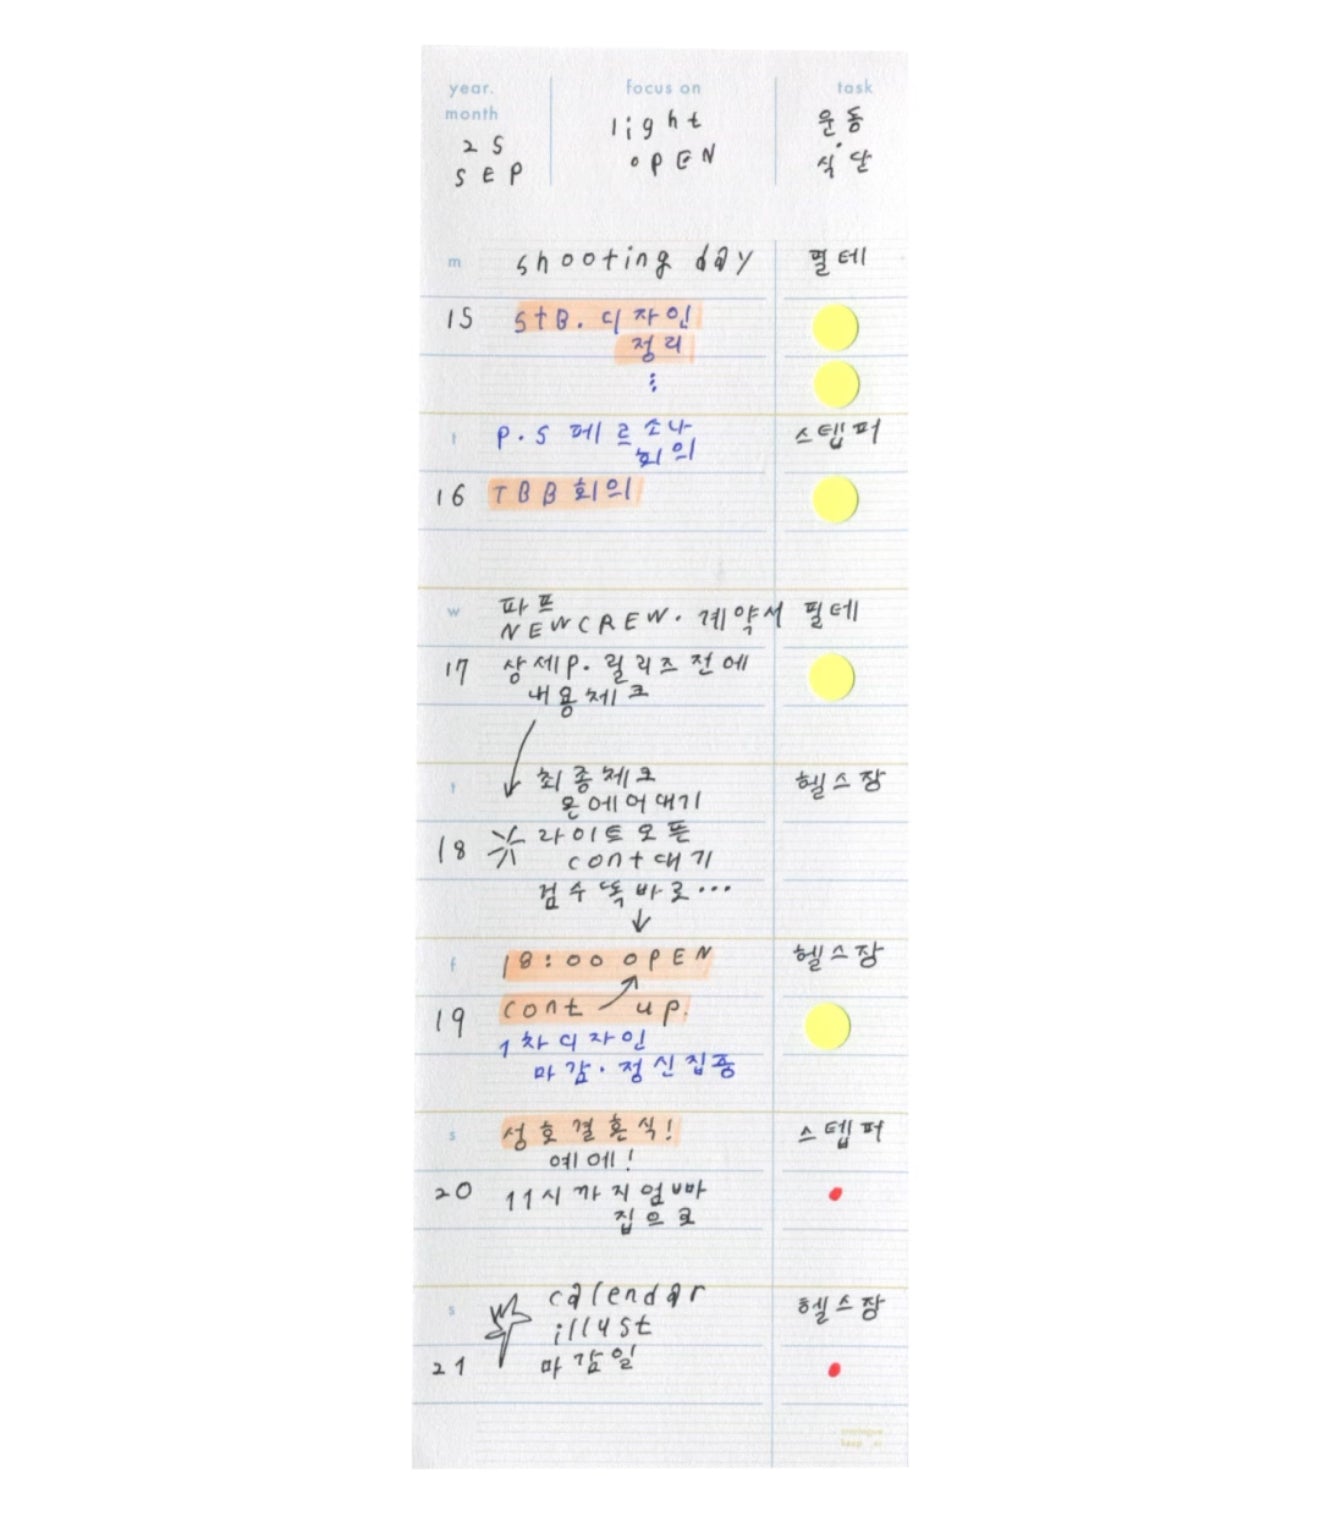 year. focus on task
month
light 운동
25 OPEN 식단
SEP
m shooting day 필테
15 STB. 디자인
정리
⋮
t P.S 페르소나 스텝퍼
회의
16 TBB 회의
w 파프
NEWCREW. 계약서 필테
17 상세P. 릴리즈 전에
내용체크
t 최종체크 헬스장
온에어대기
18 라이트오픈
cont대기
검수똑바로...
f 18:00 OPEN 헬스장
19 cont up.
1차디자인
마감. 정신집중
s 성호결혼식! 스텝퍼
예에!
20 11시까지엄빠
집으로
s calendar 헬스장
illust
21 마감일